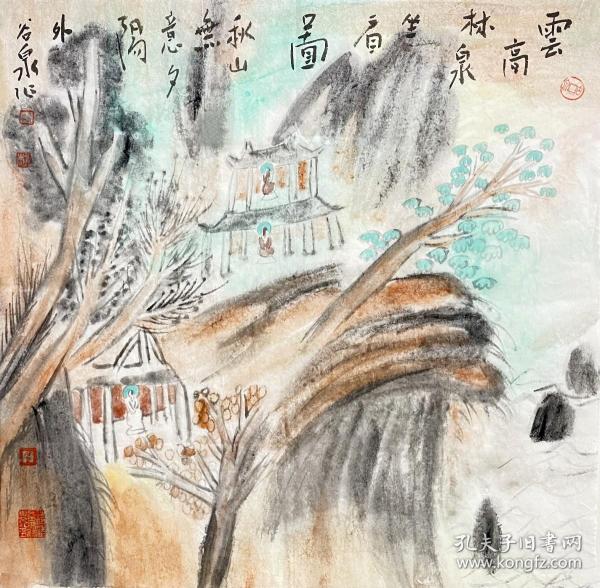 雲
高
林
泉
坐
看
圖
秋山
無
意夕
陽
外
谷泉作
孔夫子旧书网
www.kongfz.com